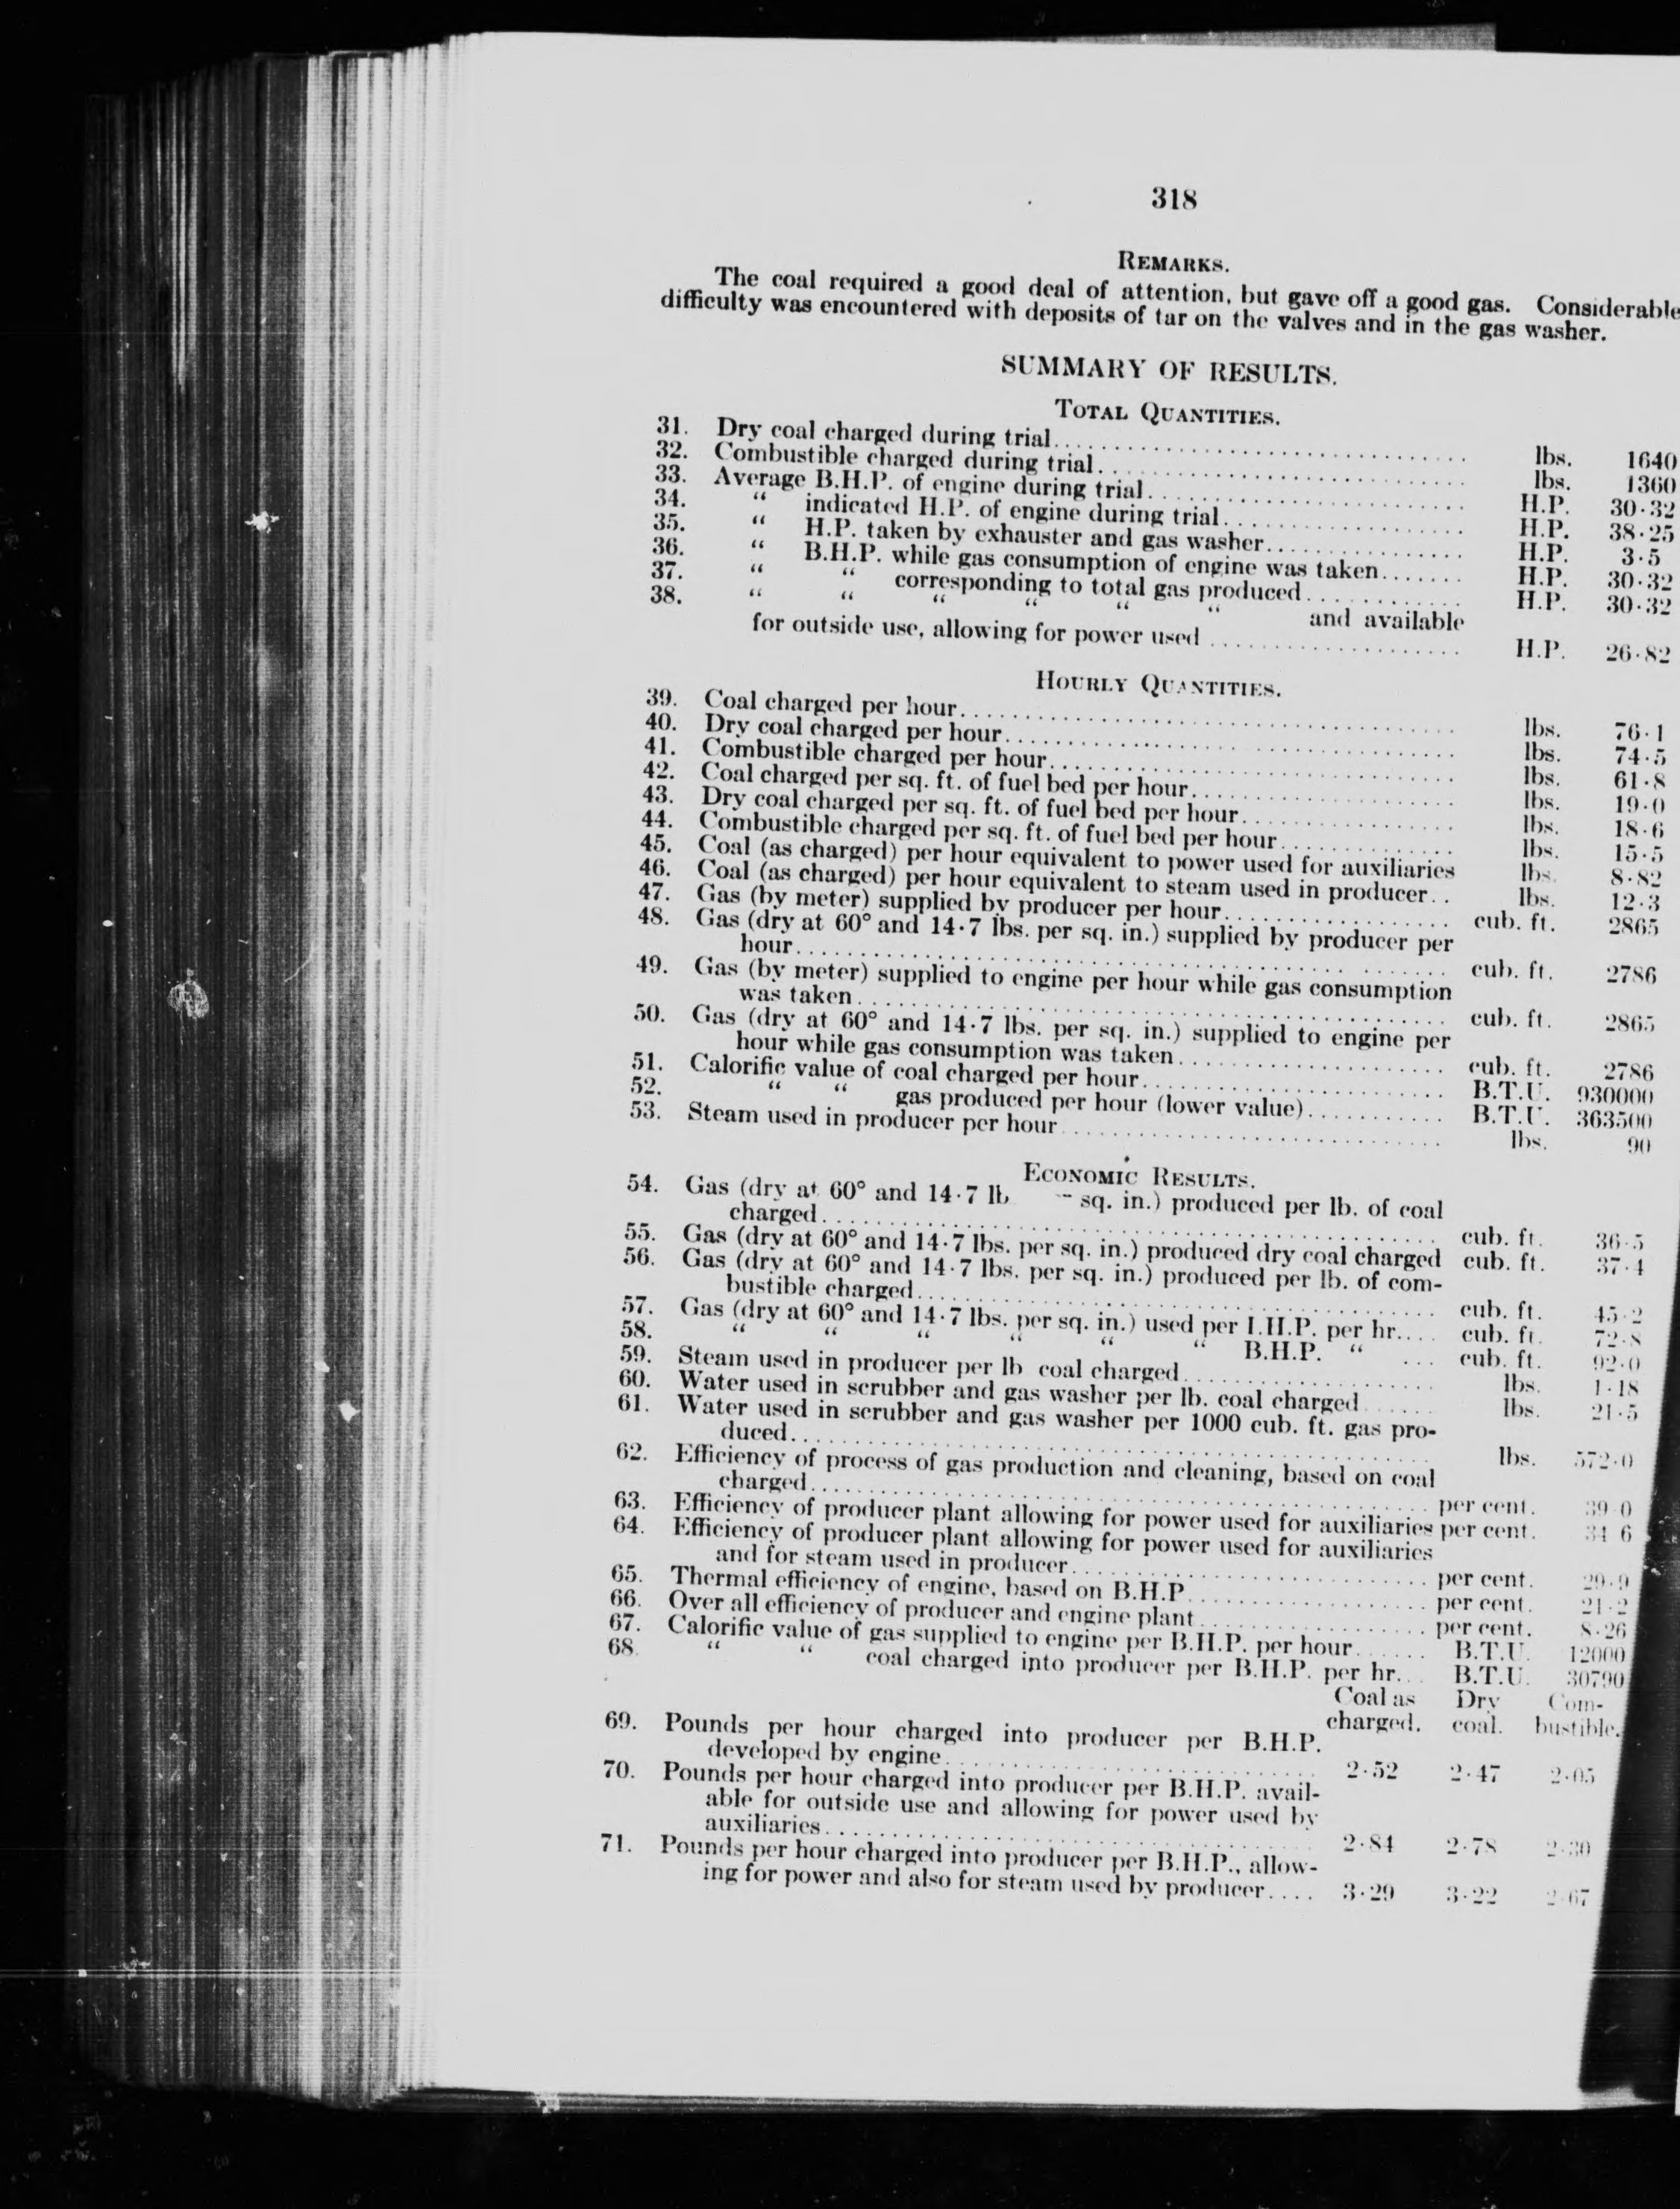 318
REMARKS.
The coal required a good deal of attention, but gave off a good gas. Considerable
difficulty was encountered with deposits of tar on the valves and in the gas washer.
SUMMARY OF RESULTS.
TOTAL QUANTITIES.
31. Dry coal charged during trial.......... lbs. 1640
32. Combustible charged during trial.......... lbs. 1360
33. Average B.H.P. of engine during trial.......... H.P. 30·32
34. “ indicated H.P. of engine during trial.......... H.P. 38·25
35. “ H.P. taken by exhauster and gas washer.......... H.P. 3·5
36. “ B.H.P. while gas consumption of engine was taken....... H.P. 30·32
37. “ “ corresponding to total gas produced.......... H.P. 30·32
38. “ “ “ “ “ “ and available
for outside use, allowing for power used .......... H.P. 26·82
HOURLY QUANTITIES.
39. Coal charged per hour.......... lbs. 76·1
40. Dry coal charged per hour.......... lbs. 74·5
41. Combustible charged per hour.......... lbs. 61·8
42. Coal charged per sq. ft. of fuel bed per hour.......... lbs. 19·0
43. Dry coal charged per sq. ft. of fuel bed per hour.......... lbs. 18·6
44. Combustible charged per sq. ft. of fuel bed per hour.......... lbs. 15·5
45. Coal (as charged) per hour equivalent to power used for auxiliaries lbs. 8·82
46. Coal (as charged) per hour equivalent to steam used in producer.. lbs. 12·3
47. Gas (by meter) supplied by producer per hour.......... cub. ft. 2865
48. Gas (dry at 60° and 14·7 lbs. per sq. in.) supplied by producer per
hour.......... cub. ft. 2786
49. Gas (by meter) supplied to engine per hour while gas consumption
was taken.......... cub. ft. 2865
50. Gas (dry at 60° and 14·7 lbs. per sq. in.) supplied to engine per
hour while gas consumption was taken.......... cub. ft. 2786
51. Calorific value of coal charged per hour.......... B.T.U. 930000
52. “ “ gas produced per hour (lower value).......... B.T.U. 363500
53. Steam used in producer per hour.......... lbs. 90
ECONOMIC RESULTS.
54. Gas (dry at 60° and 14·7 lb sq. in.) produced per lb. of coal
charged.......... cub. ft. 36·5
55. Gas (dry at 60° and 14·7 lbs. per sq. in.) produced dry coal charged cub. ft. 37·4
56. Gas (dry at 60° and 14·7 lbs. per sq. in.) produced per lb. of com-
bustible charged.......... cub. ft. 45·2
57. Gas (dry at 60° and 14·7 lbs. per sq. in.) used per I.H.P. per hr.... cub. ft. 72·8
58. “ “ “ “ “ “ B.H.P. “ ... cub. ft. 92·0
59. Steam used in producer per lb coal charged.......... lbs. 1·18
60. Water used in scrubber and gas washer per lb. coal charged ...... lbs. 21·5
61. Water used in scrubber and gas washer per 1000 cub. ft. gas pro-
duced.......... lbs. 572·0
62. Efficiency of process of gas production and cleaning, based on coal
charged.......... per cent. 39 0
63. Efficiency of producer plant allowing for power used for auxiliaries per cent. 34 6
64. Efficiency of producer plant allowing for power used for auxiliaries
and for steam used in producer.......... per cent. 29·9
65. Thermal efficiency of engine, based on B.H.P.......... per cent. 21·2
66. Over all efficiency of producer and engine plant.......... per cent. 8·26
67. Calorific value of gas supplied to engine per B.H.P. per hour...... B.T.U. 12000
68. “ “ coal charged into producer per B.H.P. per hr... B.T.U. 30790
Coal as Dry Com-
charged. coal. bustible.
69. Pounds per hour charged into producer per B.H.P.
developed by engine.......... 2·52 2·47 2·05
70. Pounds per hour charged into producer per B.H.P. avail-
able for outside use and allowing for power used by
auxiliaries.......... 2·84 2·78 2·30
71. Pounds per hour charged into producer per B.H.P., allow-
ing for power and also for steam used by producer.... 3·29 3·22 2·67